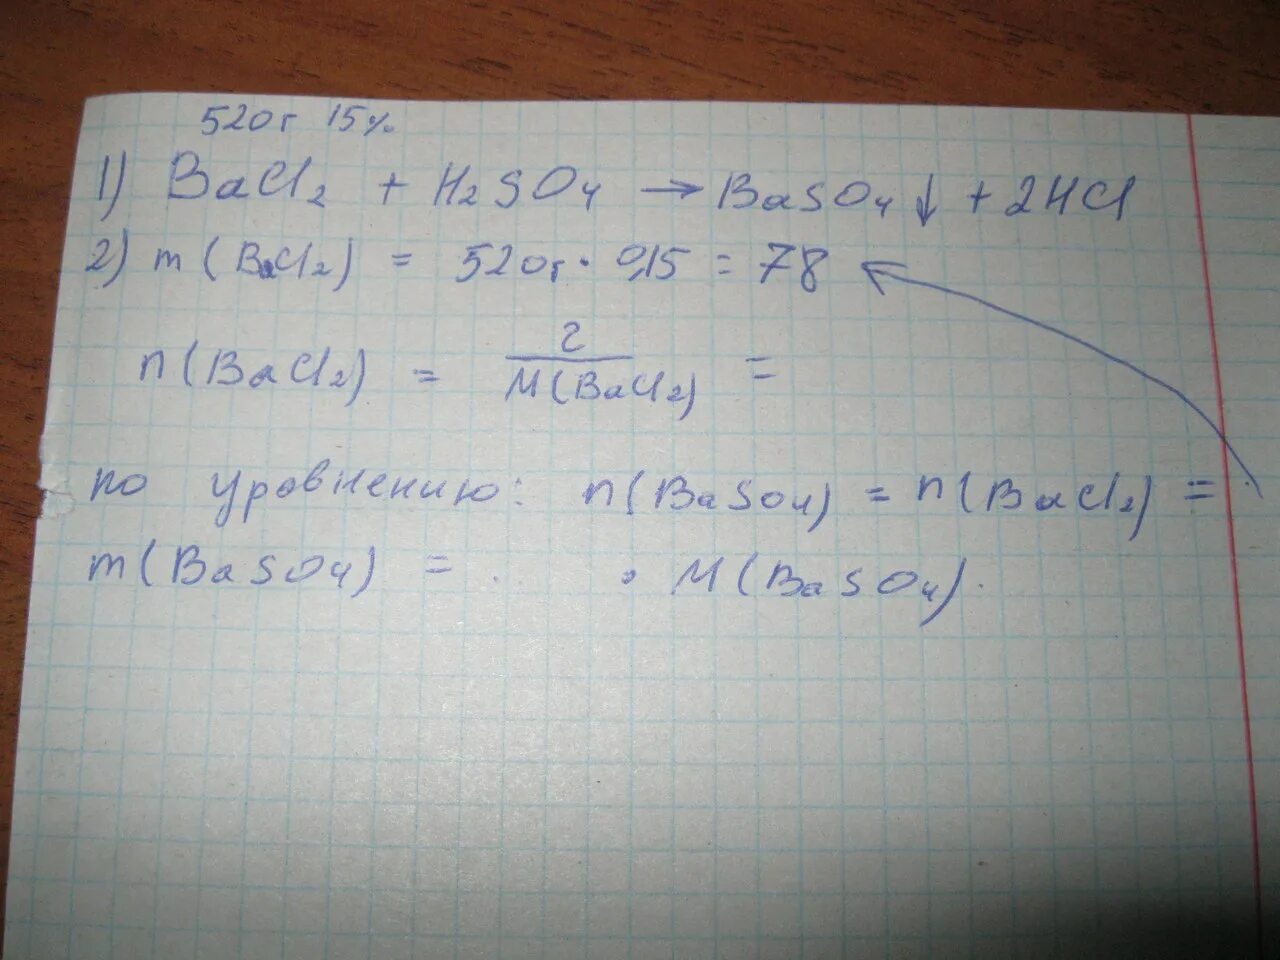 520г 15%
1) BaCl2 + H2SO4 → BaSO4 ↓ + 2HCl
2) m (BaCl2) = 520г · 0,15 = 78
n (BaCl2) = г / M (BaCl2) =
по уравнению: n (BaSO4) = n (BaCl2) =
m (BaSO4) = . · M (BaSO4).